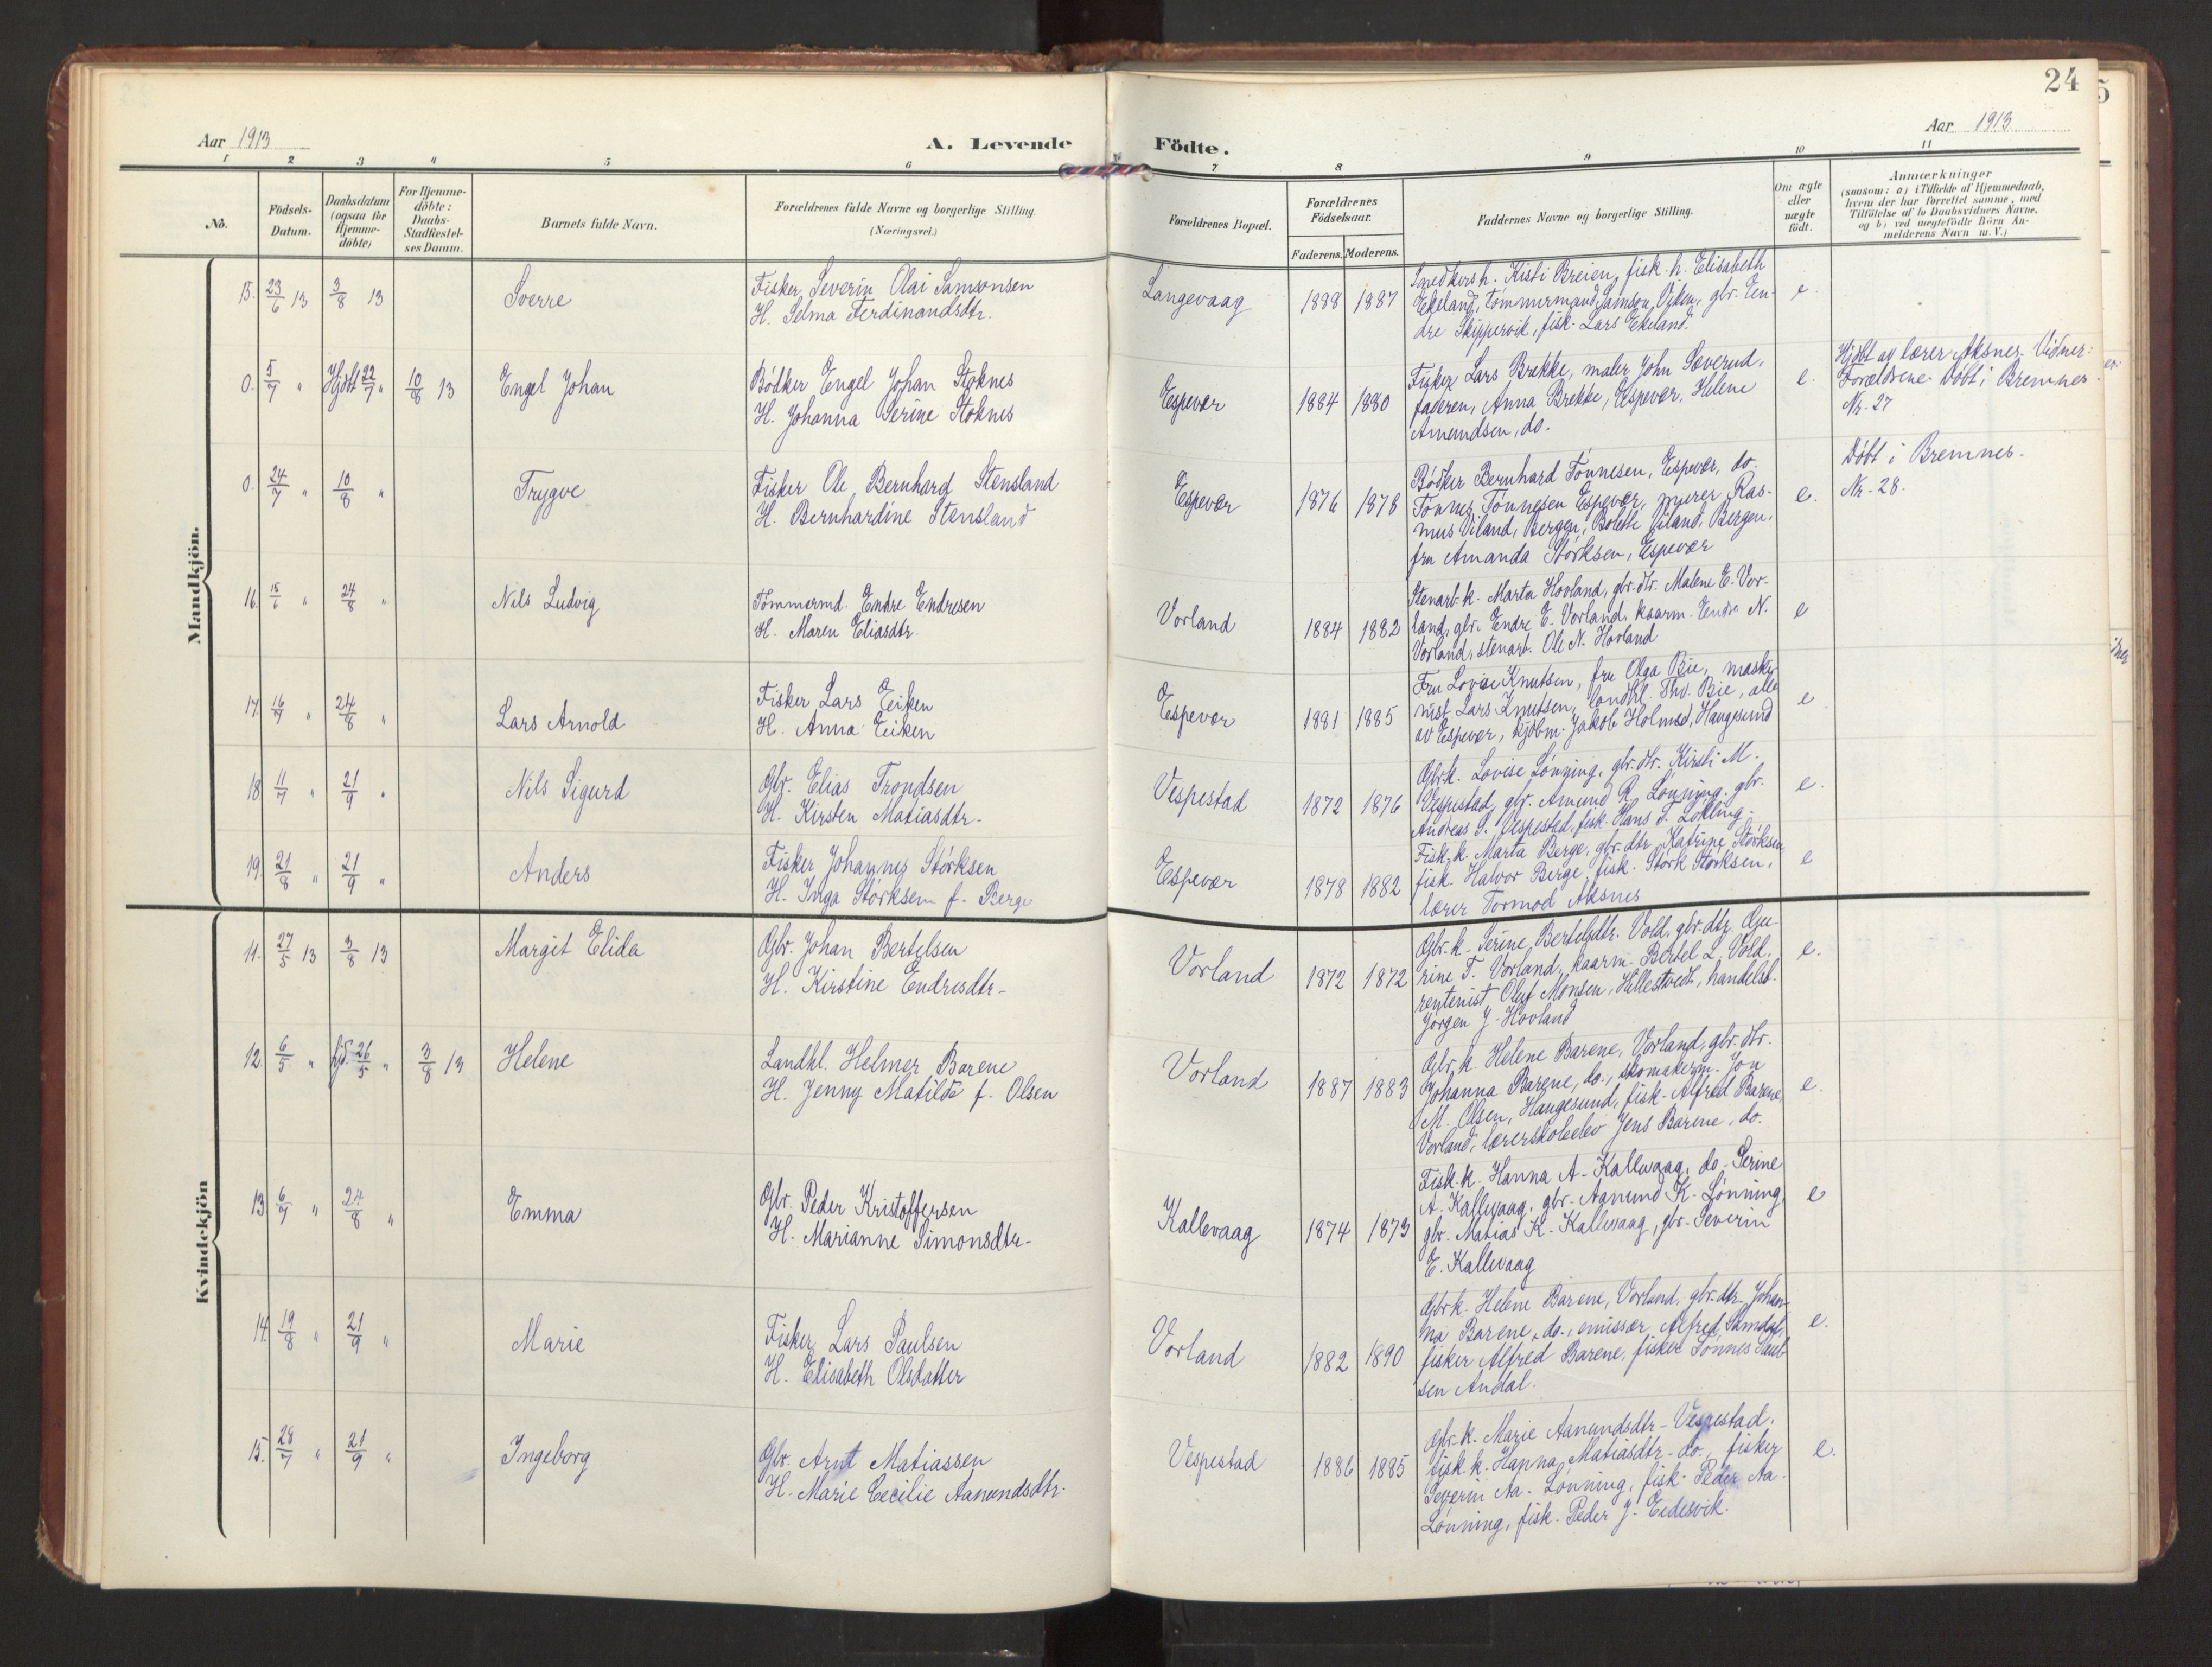 24
Aar 1913
A. Levende
Födte.
Aar 1913
1 2 3 4 5 6 7 8 9 10 11
No.
Födsels-
Datum.
Daabsdatum
(ogsaa for
Hjemme-
döbte)
For Hjemme-
döbte:
Daabs-
Stadfæstel-
ses Datum.
Barnets fulde Navn.
Forældrenes fulde Navne og borgerlige Stilling.
(Næringsvei.)
Forældrenes Bopæl.
Forældrenes
Födselsaar.
Faderens. Moderens.
Faddernes Navne og borgerlige Stilling.
Om ægte
eller
uægte
födt.
Anmærkninger
(saasom: a) i Tilfælde af Hjemmedaab,
hvem der har forrettet samme, med
Tilföielse af to Daabsvidners Navne,
og b) ved uægtefödte Börn An-
melderens Navn m.V.)
Mandkjön.
15. 23/6 13 3/8 13
Sverre
Fisker Severin Olai Samsonsen
H. Selma Ferdinandsdtr.
Langevaag
1888 1887
Snedkersh. Kisti Breien, fisk. h. Elisabeth
Ekeland, tømmermand Samson Viken, gbr. En-
dre Skippervik, fisk. Lars Ekeland.
e.
0. 5/7 " Hjdbt 22/7 " 10/8 13
Engel Johan
Bødker Engel Johan Stoknes
H. Johanna Serine Stoknes
Espevær
1884 1880
Fisker Lars Brekke, maler John Sæverud,
faderen, Anna Brekke, Espevær, Helene
Amundsen, do.
e.
Hjdbt av lærer Aksnes. Vidner:
Forældrene. Døbt i Bremnes
Nr. 27
0. 24/7 " 10/8 "
Trygve
Fisker Ole Bernhard Stensland
H. Bernhardine Stensland
Espevær
1876 1878
Bødker Bernhard Tønnesen, Espevær, do.
Tønnes Tønnesen Espevær, murer Ras-
mus Viland, Bergen, Bolette Viland, Bergen,
fru Amanda Størksen, Espevær
e.
Døbt i Bremnes.
Nr. 28.
16. 15/6 " 24/8 "
Nils Ludvig
Tømmermd. Endre Endresen
H. Maren Eliasdtr.
Vorland
1884 1882
Stenarb. k. Marta Hovland, gbr. dtr. Malene E. Vor-
land, gbr. Endre E. Vorland, kaarm. Endre N.
Vorland, stenarb. Ole N. Hovland
e
17. 16/7 " 24/8 "
Lars Arnold
Fisker Lars Eiken
H. Anna Eiken
Espevær
1881 1885
Fru Lovise Knutsen, fru Olga Bie, maski-
nist Lars Knutsen, landhl. Thv. Bie, alle
av Espevær, kjøbm. Jakob Holmed, Haugesund
e
18. 11/7 " 21/9 "
Nils Sigurd
Gbr. Elias Trondsen
H. Kirsten Matiasdtr.
Vespestad
1872 1876
Gbr.k. Lovise Lønning, gbr. dtr. Kirsti M.
Vespestad, gbr. Amund R. Lønning, gbr.
Andreas S. Vespestad, fisk. Hans T. Løkling.
e.
19. 21/8 " 21/9 "
Anders
Fisker Johannes Størksen
H. Inga Størksen f. Berge
Espevær
1878 1882
Fisk.k. Marta Berge, gbr. dtr. Katrine Størksen
fisk. Halvor Berge, fisk. Størk Størksen,
lærer Tormod Aksnes
e
Kvindekjön
11. 27/5 13 3/8 13
Margit Elida
Gbr. Johan Bertelsen
H. Kirstine Endresdtr.
Vorland
1872 1872
Gbr. k. Serine Bertelsdtr. Vold, gbr. dtr. Gu-
rine T. Vorland, kaarm. Bertel L. Vold,
rentenist Oluf Monsen, Hillestvedt, handelsb.
Jørgen J. Hovland
e.
12. 6/5 " Hjd. 26/5 " 3/8 13
Helene
Landhl. Helmer Barene
H. Jenny Matilde f. Olsen
Vorland
1887 1883
Gbr. k. Helene Barene, Vorland, gbr. dtr.
Johanna Barene, do., skomakerm. Jon
M. Olsen, Haugesund, fisk. Alfred Barene,
Vorland, lærerskoleelev Jens Barene, do.
e.
13. 6/7 " 24/8 "
Emma
Gbr. Peder Kristoffersen
H. Marianne Simonsdtr.
Kallevaag
1874 1873
Fisk.k. Hanna A. Kallevaag, do. Serine
A. Kallevaag, gbr. Aanund K. Lønning
gbr. Matias K. Kallevaag, gbr. Severin
E. Kallevaag
e
14. 19/8 " 21/9 "
Marie
Fisker Lars Paulsen
H. Elisabeth Olsdatter
Vorland
1882 1890
Gbr.k. Helene Barene, Vorland, gbr. dtr. Johan-
na Barene, do., emissær Alfred Samdal,
fisker Alfred Barene, fisker Tønnes Paul-
sen Andal.
e.
15. 28/7 " 21/9 "
Ingeborg
Gbr. Arnt Matiassen
H. Marie Cecilie Aanundsdtr.
Vespestad
1886 1885
Gbr. k. Marie Aanundsdtr. Vespestad,
fisk. k. Hanna Matiasdtr. do., fisker
Severin Aa. Lønning, fisk. Peder Aa.
Lønning, fisk. Peder J. Eidesvik.
e.